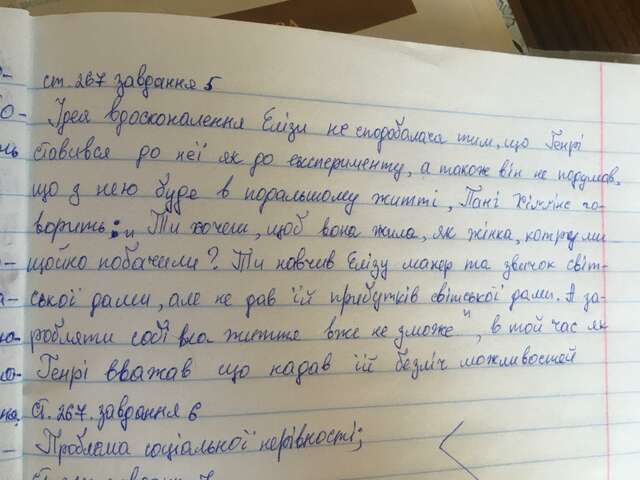 ст. 267 завдання 5
Ідея вдосконалення Елізи не сподобалася тим, що Генрі
ставився до неї як до експерименту, а також він не подумав,
що з нею буде в подальшому житті, Пані Хіггінс го-
ворить: „Ти хочеш, щоб вона жила, як жінка, котру ми
щойно бачили? Ти навчив Елізу манер та звичок світ-
ської дами, але не дав їй прибутків світської дами. А за-
робляти собі на життя вже не зможе", в той час як
Генрі вважав що надав їй безліч можливостей
Ст. 267. завдання 6
- Проблема соціальної нерівності;